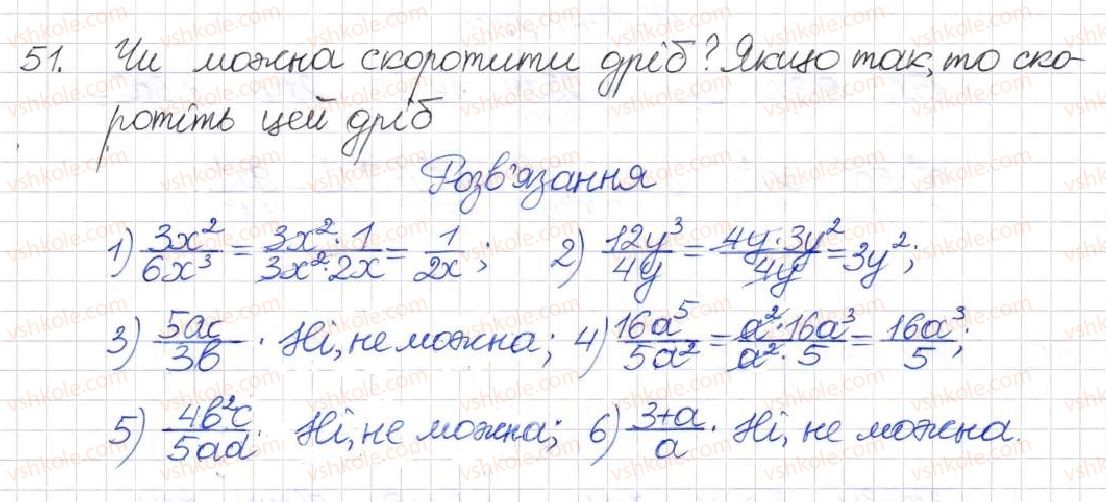 51. Чи можна скоротити дріб? Якщо так, то ско-
ротіть цей дріб
Розв'язання
1) 3x²/6x³ = 3x²·1/3x²·2x = 1/2x; 2) 12y³/4y = 4y·3y²/4y = 3y²;
3) 5ac/3b. Ні, не можна; 4) 16a⁵/5a² = a²·16a³/a²·5 = 16a³/5;
5) 4b²c/5ad. Ні, не можна; 6) 3+a/a. Ні, не можна.